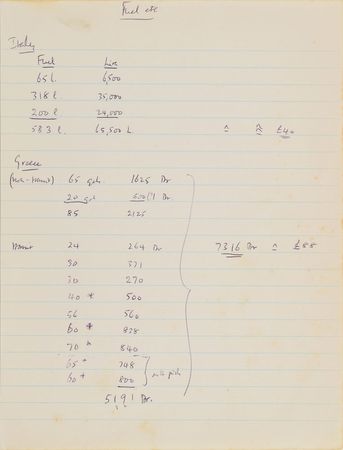 Fuel etc
Italy
Fuel Lire
65 l. 6,500
318 l 35,000
200 l 24,000
583 l. 65,500 L. ≏ £40
Greece
(non-transit) 65 gals. 1625 Dr
20 gal 500 Dr
85 2125
transit 24 264 Dr 7316 Dr ≏ £88
30 331
30 270
40 * 500
56 560
60 * 828
70 * 840
65 * 748
60 * 800
5191 Dr.